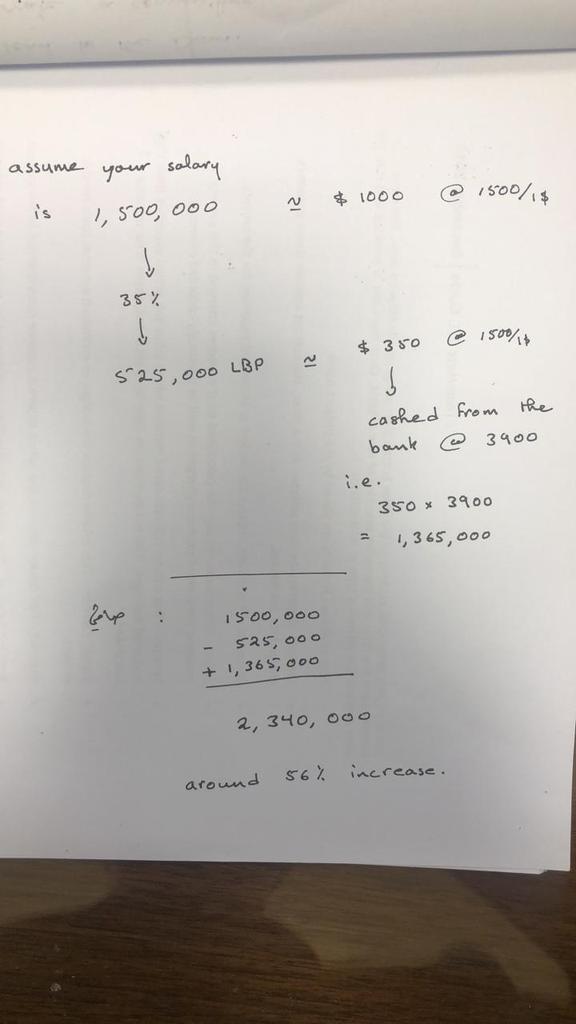 assume your salary
is 1,500,000 ≃ $ 1000 @ 1500/1$
↓
35%
↓
525,000 LBP ≃ $ 350 @ 1500/1$
↓
cashed from the
bank @ 3900
i.e.
350 x 3900
= 1,365,000
: 1500,000
- 525,000
+ 1,365,000
2,340,000
around 56% increase.